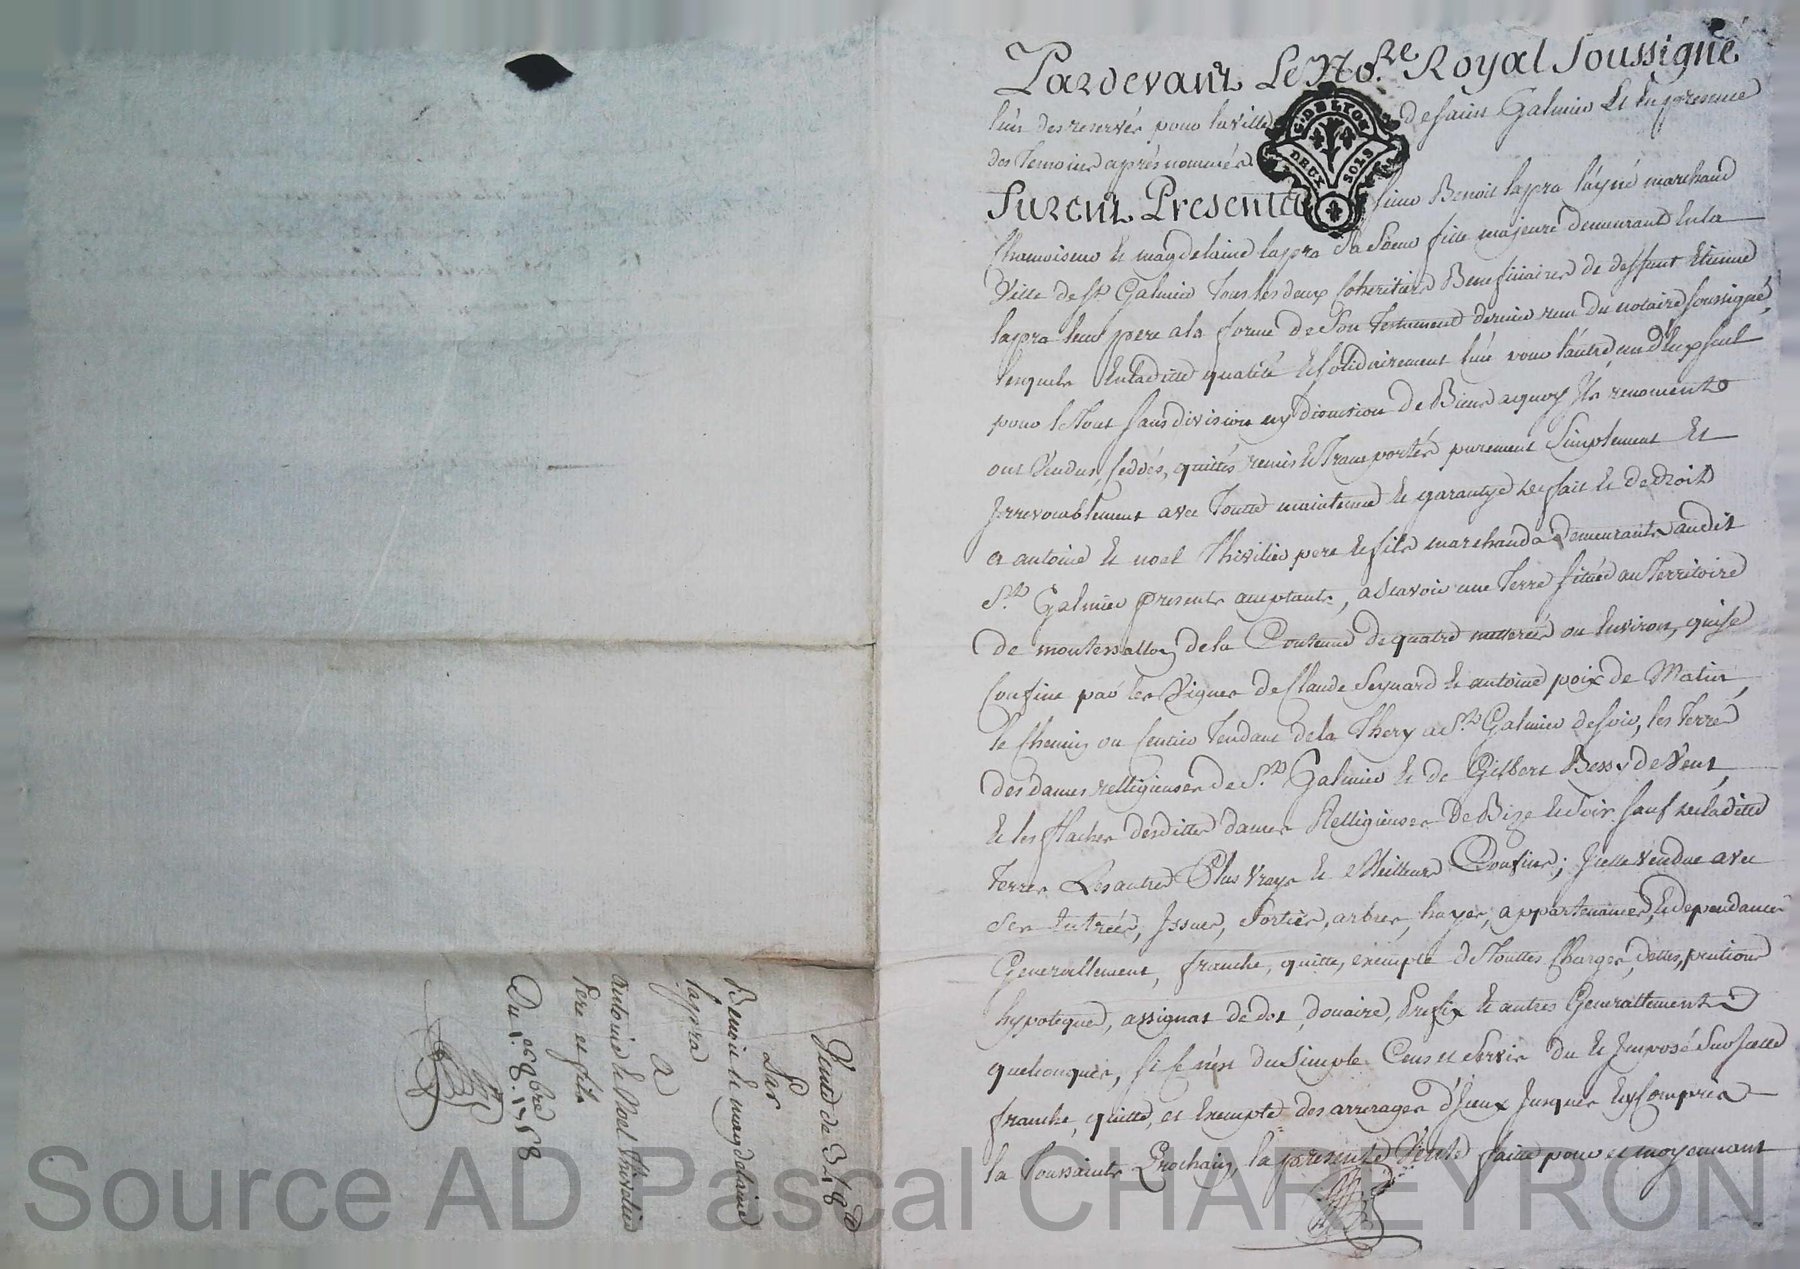 Pardevant Le No.re Royal Soussigné
l'un des reservés pour la ville de saint Galmier Et En presence
des Temoins après nommés
G. DE LION
DEUX SOLS
Furent Presents sieur Benoit lapra l'ayné marchand
Chamoiseur et magdelaine lapra Sa Soeur fille majeure demeurant En la
Ville de St Galmier Tous les deux Coheritiers Beneficiaires de deffunt Etienne
lapra leur pere a la forme de Son Testament dernier reçu du notaire soussigné,
lesquels En laditte qualité et solidairement l'un pour l'autre un d'Eux seul
pour le Tout sans division ny discution de Biens aquoy Ils renoncent
ont Vendus, Ceddés, quittés remis et Transportés purement Simplement Et
Irrevocablement avec Toutte maintenue et garantye de fait et de droit
a antoine et noel Thivilier pere et fils marchands demeurants audit
St. Galmier presents acceptants, a scavoir une Terre située au Territoire
de de la Contenue de quatre metterées ou Environ, qui se
Confine par les Vignes de Claude Seynard et antoine poix de Matin,
le Chemin ou sentier Tendant de la Thery a St. Galmier de soir, les Terres
des dames relligieuses de St. Galmier et de Gilbert Bessy de Vent,
et les desdittes dames Relligieuses De Bize et soir sauf de laditte
Terre Les autres Plus Vrays et Meilleurs Confins; Icelle vendue avec
Ses Entrées, Issues, Sorties, arbres, hayes, appartenances, et dependances
Generallement, franche, quitte, exempte de Touttes Charges, dettes, pentions
hypoteques, assignat de dot, douaire, Prefix et autres Generallement
quelconques, si ce n'est du Simple Cens et Servis du et Imposé Sur Icelle
franche, quitte, et Exempte des arrerages d'Iceux Jusques Ey Compris
la Toussaints Prochain, la presente Vente faitte pour et moyennant
Vente de 318#
Par
Benoit et magdelaine
lapra
a
Antoine et Noel Thivilier
Pere et fils
Du 1.er 8bre 1758
Source AD Pascal CHAREYRON